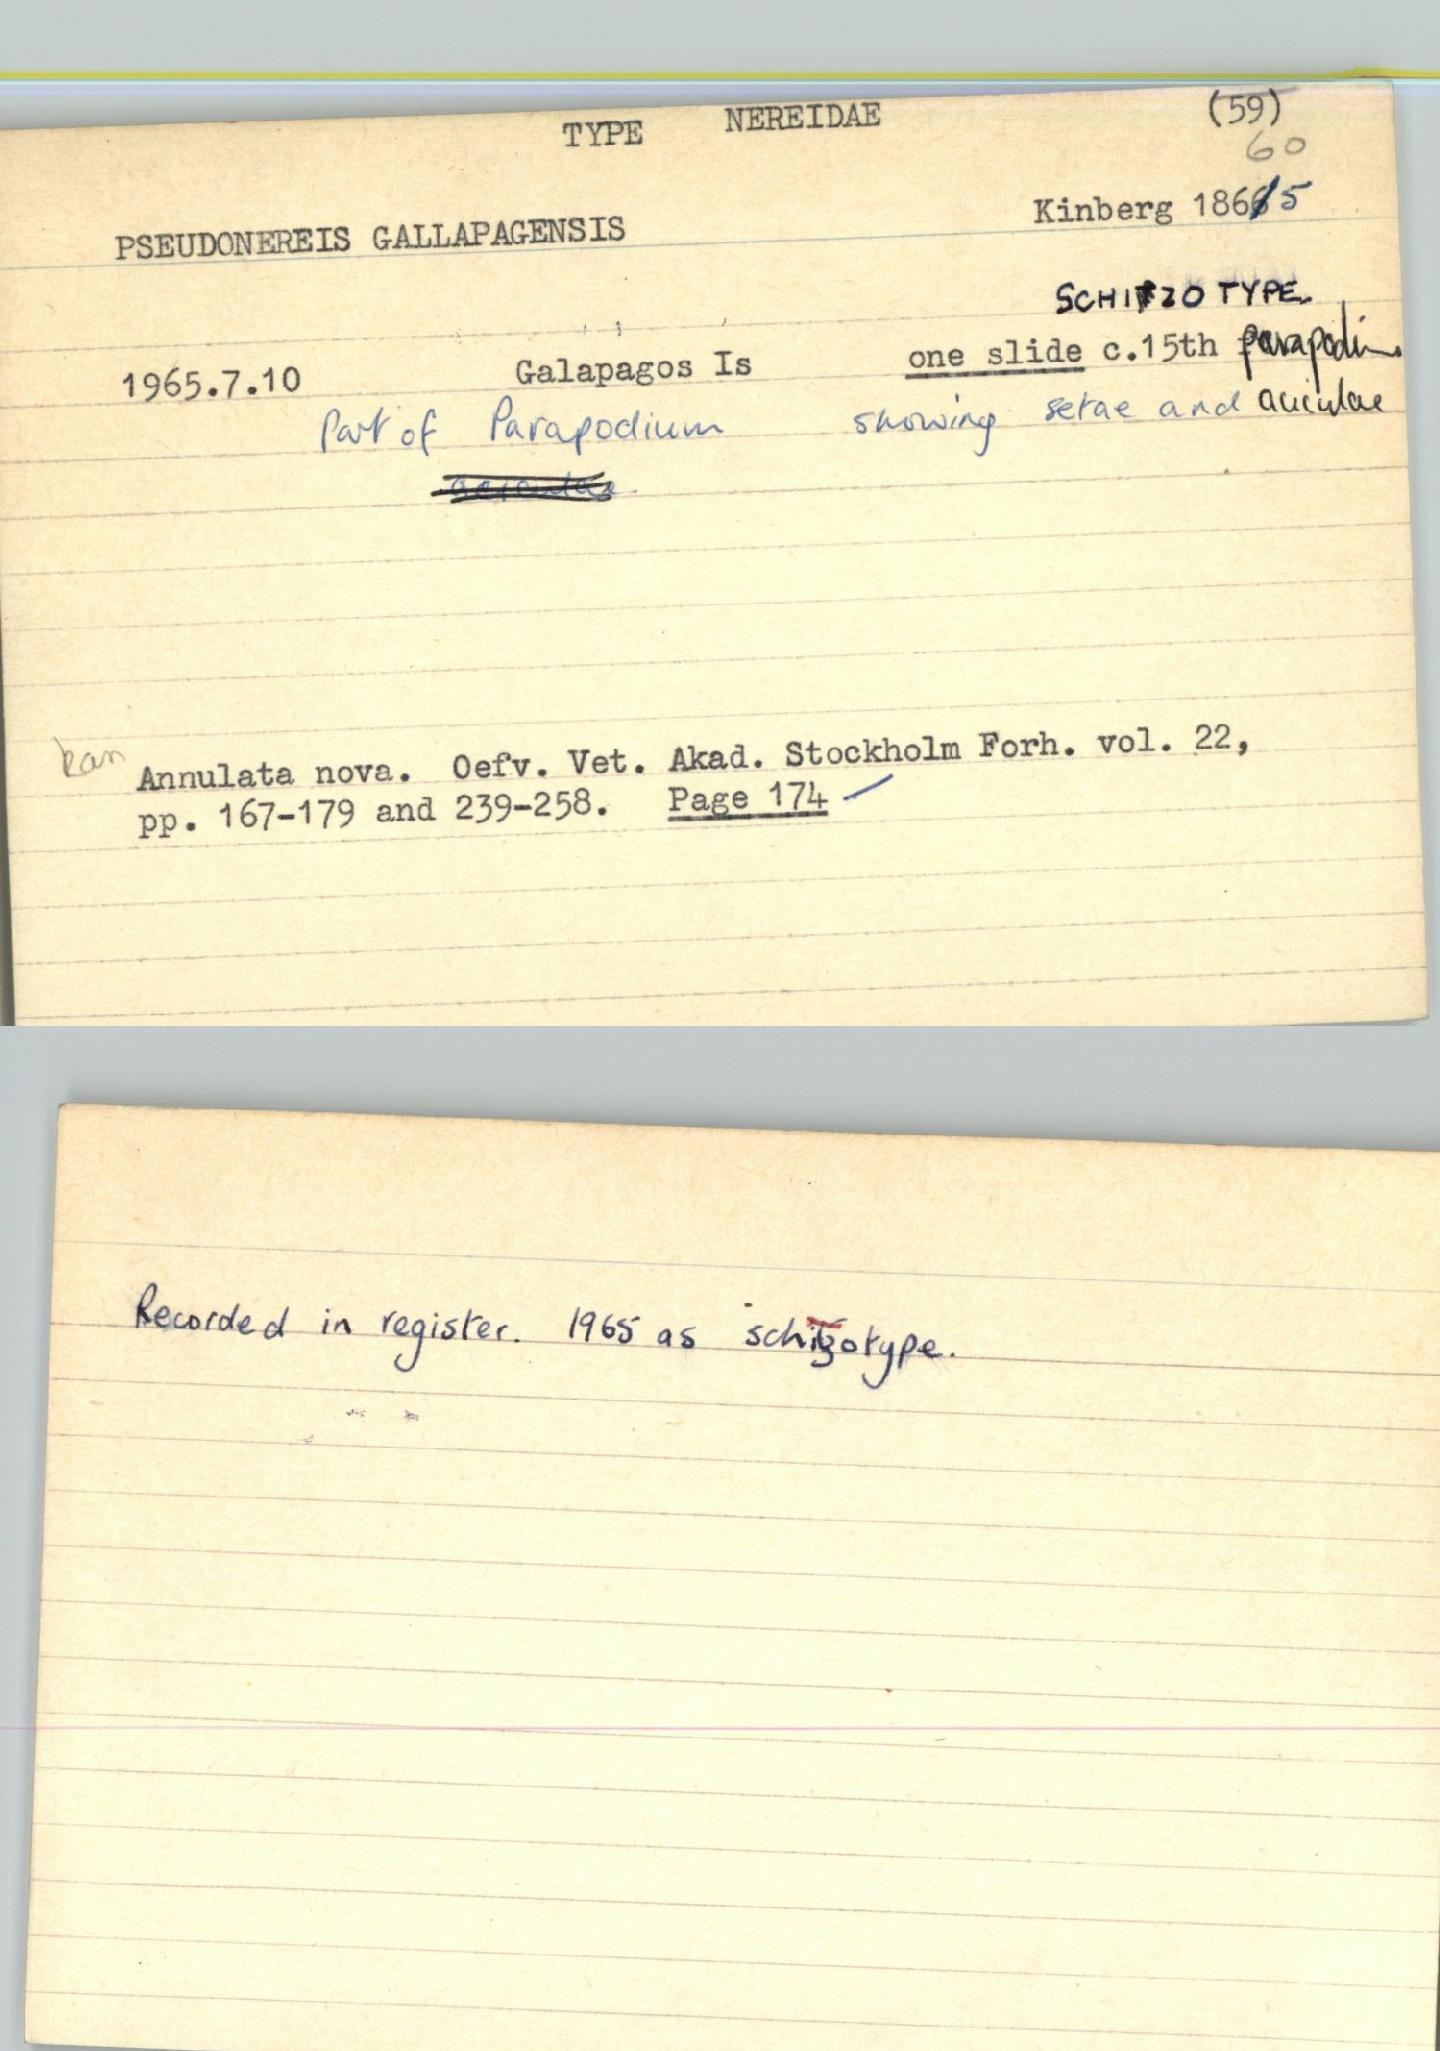 TYPE NEREIDAE (59)
60
PSEUDONEREIS GALLAPAGENSIS Kinberg 1865
SCHIZOTYPE.
1965.7.10 Galapagos Is one slide c.15th parapodium
Part of Parapodium showing setae and aciculae
Annulata nova. Oefv. Vet. Akad. Stockholm Forh. vol. 22,
pp. 167-179 and 239-258. Page 174
Recorded in register. 1965 as schizotype.